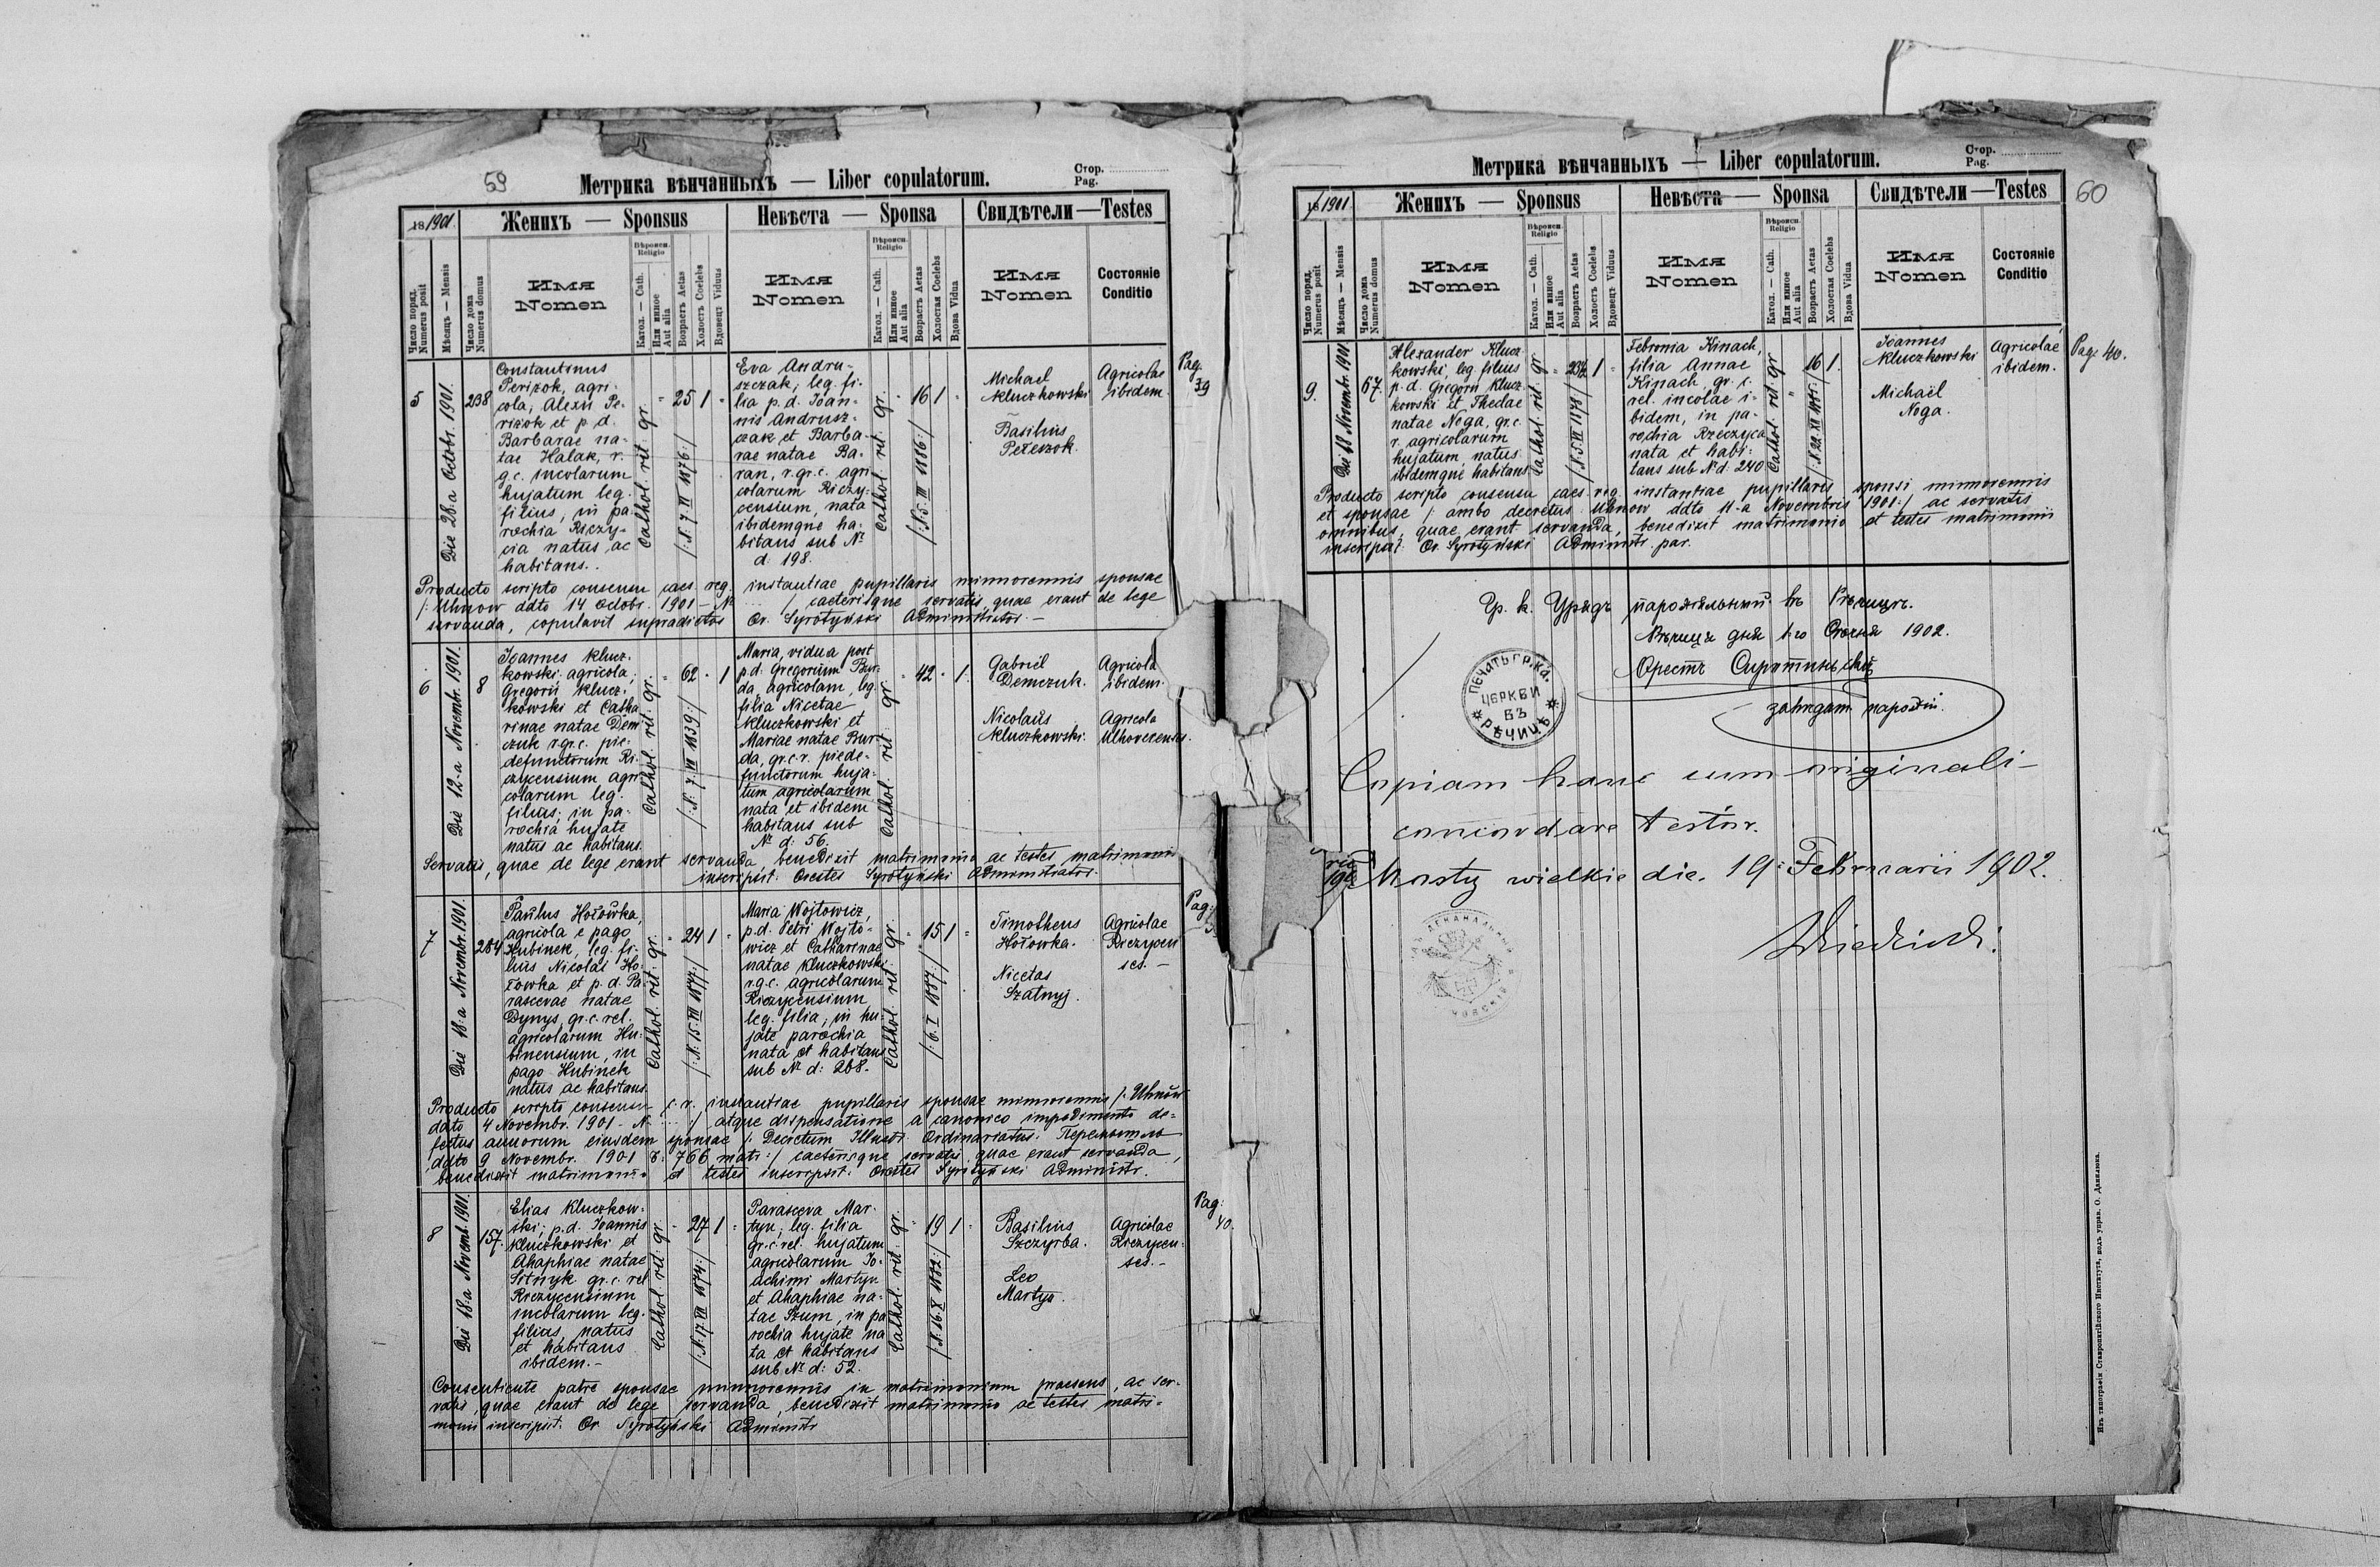 59
Метрика вѣнчанныхъ — Liber copulatorum.
Стор.
Pag.
1901.
Женихъ — Sponsus
Невѣста — Sponsa
Свидѣтели — Testes
Число поряд.
Numerus posit
Мѣсяцъ — Mensis
Число дома
Numerus domus
Имя
Nomen
Вѣроисп.
Religio
Катол. — Cath.
Или инное
Aut alia
Возрастъ Aetas
Холостъ Coelebs
Вдовецъ Viduus
Имя
Nomen
Вѣроисп.
Religio
Катол. — Cath.
Или инное
Aut alia
Возрастъ Aetas
Холостая Coelebs
Вдова Vidua
Имя
Nomen
Состояніе
Conditio
5
Die 28.a Octobr. 1901.
238
Constantinus
Perizok, agri-
cola, Alexii Pe-
rizok et p.d.
Barbarae na-
tae Halak, r.
g.c. incolarum
hujatum leg.
filius, in pa-
rochia Riczy-
cia natus ac
habitans.
Cathol. rit. gr.
25 1
/:N. 7. VI 1876:/
Eva Andru-
szczak, leg. fi-
lia p.d. Joan-
nis Andrusz-
czak et Barba-
rae natae Ba-
ran, r.gr.c. agri-
colarum Riczy-
censium, nata
ibidemque ha-
bitans sub No
d. 198.
Cathol. rit. gr.
16 1
/:N. 5. III 1886:/
Michael
Kluczkowski
Basilius
Agricolae
ibidem.
Pag.
39
Producto scripto consensu caes. reg. instantiae pupillaris minorennis sponsae
/: Uhnow ddto 14 Octobr. 1901 – No ... / caeterisque servatis, quae erant de lege
servanda, copulavit supradictos Or. Syrotyński Administrator. –
6
Die 12-a Novembr. 1901.
8
Joannes Klucz-
kowski agricola,
Gregorii Klucz-
kowski et Catha-
rinae natae Dem-
czuk r.gr.c. pie-
defunctorum Ri-
czycensium agri-
colarum leg.
filius, in pa-
rochia hujate
natus ac habitans.
Cathol. rit. gr.
62 1
/:N. 7. VII 1839:/
Maria, vidua post
p.d. Gregorium Bur-
da agricolam, leg.
filia Nicetae
Kluczkowski et
Mariae natae Bur-
da, gr.c.r. piede-
functorum huja-
tum agricolarum
nata et ibidem
habitans sub
No d: 56.
Cathol. rit gr.
42 1.
Gabriel
Demczuk.
Nicolaus
Kluczkowski.
Agricola
ibidem.
Agricola
Servatis, quae de lege erant servanda, benedixit matrimonio ac testes matrimonii
inscripsit. Orestes Syrotyński Administrator.
7
Die 18.a Novembr. 1901.
284
Paulus Hołówka,
agricola e pago
Hubinek, leg. fi-
lius Nicolai Ho-
łowka et p.d. Pa-
rascevae natae
Dynys, gr.c. rel.
agricolarum Hu-
binensium, in
pago Hubinek
natus ac habitans.
Cathol. rit. gr.
24 1
/:N. 15. III 1877:/
Maria Wojtowicz,
p.d. Petri Wojto-
wicz et Catharinae
natae Kluczkowski
r.g.c. agricolarum
Riczycensium
leg. filia, in hu-
jate parochia
nata et habitans
sub No d: 268.
Cathol. rit. gr.
15 1
/:6. I 1887:/
Timotheus
Hołowka.
Nicetas
Szatnyj.
Agricolae
Riczycen
ses. –
Pag:
Producto scripto consensu c.r. instantiae pupillaris sponsae minorennis /: Uhnów
dato 4 Novembr. 1901 – N. ... / atque dispensatione a canonico impedimento de-
fectus annorum eiusdem sponsae /: Decretum Illustr. Ordinariatus: Перемышль
ddto 9 Novembr. 1901 766 matr:/ caeterisque servatis, quae erant servanda,
benedixit matrimonio et testes inscripsit: Orestes Syrotyński Administr.
8
Die 18.a Novemb. 1901.
157.
Elias Kluczkow-
ski; p.d. Joannis
Kluczkowski et
Ahaphiae natae
Sitnyk gr.c. rel
Riczycensium
incolarum leg.
filius, natus
et habitans
ibidem. –
Cathol. rit. gr.
27 1
/:N. 17. VII 1874:/
Parasceva Mar-
tyn; leg. filia
gr.c. rel. hujatum
agricolarum Jo-
achimi Martyn
et Ahaphiae na-
tae Szum, in pa
rochia hujate na
ta et habitans
sub No d: 52.
Cathol. rit gr.
19 1
/:N. 16. X 1882:/
Basilius
Szczyrba.
Leo
Martyn.
Agricolae
Riczycen-
ses. –
Pag:
40.
Consentiente patre sponsae minorennis in matrimonium praesens, ac ser-
vatis, quae erant de lege servanda, benedixit matrimonio ac testes matri-
monii inscripsit. Or Syrotyński Administr
Метрика вѣнчанныхъ — Liber copulatorum.
Стор.
Pag.
60
1901
Женихъ — Sponsus
Невѣста — Sponsa
Свидѣтели — Testes
Число поряд.
Numerus posit
Мѣсяцъ — Mensis
Число дома
Numerus domus
Имя
Nomen
Вѣроисп.
Religio
Катол. — Cath.
Или инное
Aut alia
Возрастъ Aetas
Холостъ Coelebs
Вдовецъ Viduus
Имя
Nomen
Вѣроисп.
Religio
Катол. — Cath.
Или инное
Aut alia
Возрастъ Aetas
Холостая Coelebs
Вдова Vidua
Имя
Nomen
Состояніе
Conditio
9.
Die 18 Novembr. 1901
67.
Alexander Klucz
kowski, leg. filius
p.d. Gregorii Klucz
kowski et Theclae
natae Noga, gr.c.
r. agricolarum
hujatum natus
ibidemque habitans
Cathol. rit. gr
1
Febronia Kinach,
filia Annae
Kinach, gr. c.
rel. incolae i-
bidem, in pa-
rochia Rzeczyca
nata et habi-
tans sub No d. 240
Cathol. rit. gr
16 1.
Joannes
Kluczkowski
Michaël
Noga.
Agricolae
ibidem.
Pag. 40.
Producto scripto consensu caes. reg. instantiae pupillaris sponsi minorennis
et sponsae /: ambo decretus Uhnow ddto 11-a Novembris 1901:/ ac servatis
omnibus, quae erant servanda, benedixit matrimonio et testes matrimonii
inscripsit. Or. Syrotyński Administr. par.
Гр. к. Урядъ парохіяльный въ Рѣчицѣ.
Рѣчица дня 1-го Січня 1902.
Орестъ Сиротиньскій
завѣдат. парохіи.
ПЕЧАТЬ ГР. КА.
ЦЕРКВИ
ВЪ
РѢЧИЦѢ
Copiam hanc cum originali
concordare testor.
Mosty wielkie die. 19. Februarii 1902.
Изъ типографіи Ставропигійского Института, подъ управ. О. Данилюка.